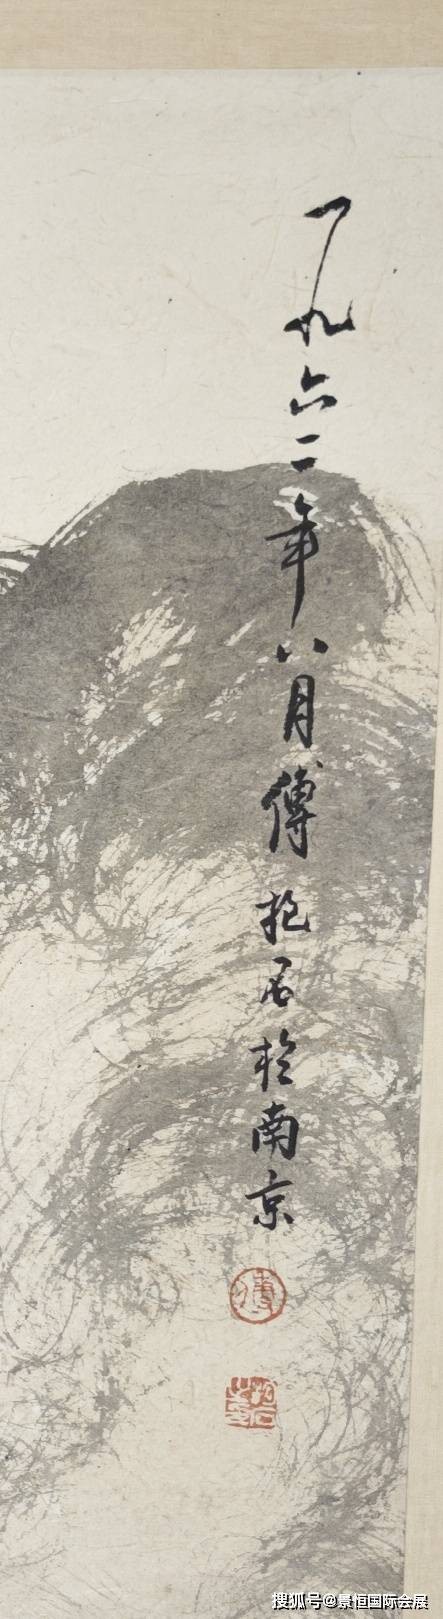 一九六二年八月傅抱石於南京
傅
抱石
搜狐号@景恒国际会展